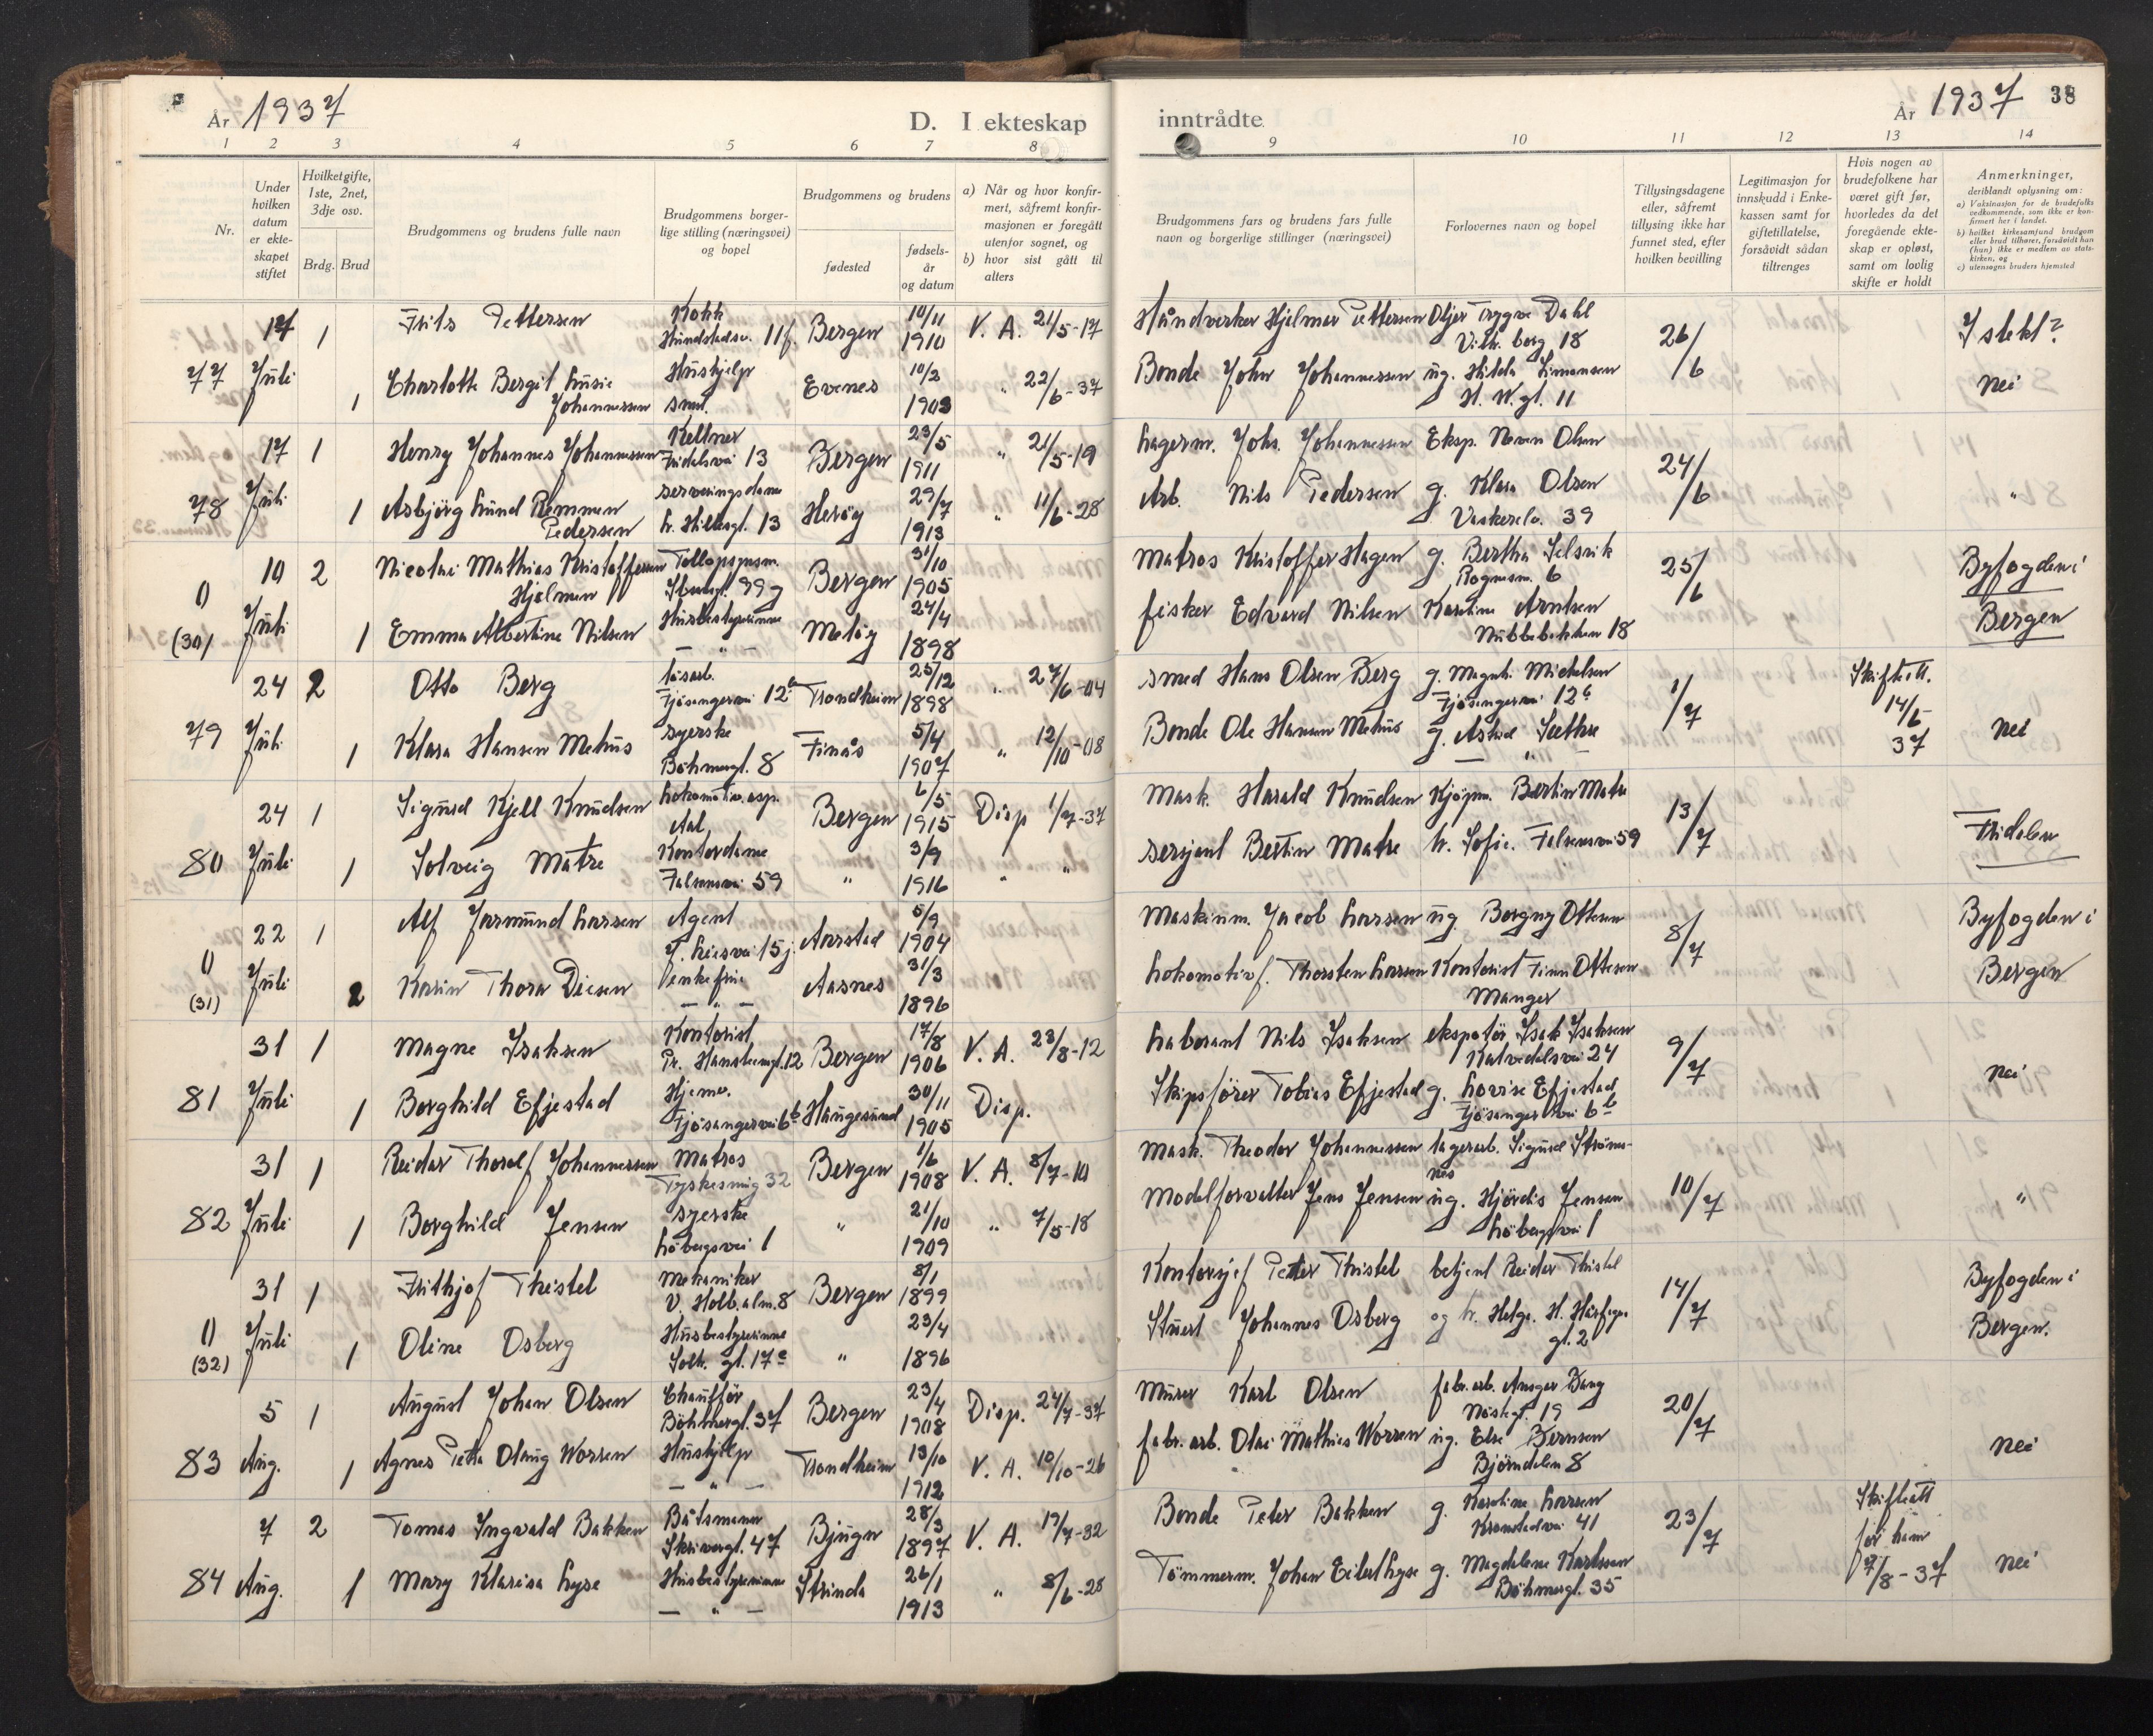 År 1937
D. I ekteskap
inntrådte
År 1937 38
1 2 3 4 5 6 7 8
9 10 11 12 13 14
Nr.
Under hvilken datum er ekteskapet stiftet
Hvilket gifte, 1ste, 2net, 3dje osv.
Brdg. Brud
Brudgommens og brudens fulle navn
Brudgommens borgerlige stilling (næringsvei) og bopel
Brudgommens og brudens
fødested
fødselsår og datum
a) Når og hvor konfirmert, såfremt konfirmasjonen er foregått utenfor sognet, og
b) hvor sist gått til alters
Brudgommens fars og brudens fars fulle navn og borgerlige stillinger (næringsvei)
Forlovernes navn og bopel
Tillysingsdagene eller, såfremt tillysing ikke har funnet sted, efter hvilken bevilling
Legitimasjon for innskudd i Enkekassen samt for giftetillatelse, forsåvidt sådan tiltrenges
Hvis nogen av brudefolkene har været gift før, hvorledes da det foregående ekteskap er opløst, samt om lovlig skifte er holdt
Anmerkninger,
deriblandt oplysning om:
a) Vaksinasjon for de brudefolks vedkommende, som ikke er konfirmert her i landet.
b) hvilket kirkesamfund brudgom eller brud tilhører, forsåvidt han (hun) ikke er medlem av statskirken, og
c) utensogns bruders hjemsted
17 1 Frits Pettersen Kokk 11f. Bergen 10/11 1910 V. A. 21/5-17 Håndverker Hjelmer Pettersen Trygve Dahl 18 26/6 I slekt?
77 Juli 1 Charlotte Bergit Lusie Johannessen Hushjelp smst. Evenes 10/2 1903 " 22/6-37 Bonde John Johannessen ug. Hilda Simonsen H. W. gt. 11 nei
17 1 Henry Johannes Johannessen Kellner 13 Bergen 23/5 1911 " 21/5-19 Lagerm. Johs. Johannessen Eksp. Olsen 24/6
78 Juli 1 Asbjörg Lund Remmen Pedersen serveringsdame 13 Heröy 29/7 1913 " 11/6-28 Arb. Nils Pedersen g. Klara Olsen 39 "
10 2 Nicolai Mathias Kristoffersen Hjelmen 99g Bergen 31/10 1905 Matros Kristoffer Hagen g. Bertha Selsvik 6 25/6 Byfogden i
0 (30) Juli 1 Emma Albertine Nilsen Husbestyrerinne — " — Melöy 24/4 1898 fisker Edvard Nilsen Karoline Arntsen Nubbebakken 18 Bergen
24 2 Otto Berg Fjösangervei 12b Trondheim 25/12 1898 " 27/6-04 smed Hans Olsen Berg g. Magnh. Michelsen Fjösangervei 12c 1/7 Skifteatt. 14/6 37
79 Juli 1 Klara Hansen Mehus syerske Böhmergt. 8 Finås 5/4 1907 " 12/10-08 Bonde Ole Hansen Mehus g. Astrid Sæthre — " — nei
24 1 Sigurd Kjell Knudsen Lokomotiv. asp. Aal Bergen 6/5 1915 Disp 1/7-37 Mask. Harald Knudsen Kjöpm. Bertin Matre 13/7 Fridalen
80 Juli 1 Solveig Matre Kontordame Falsensvei 59 " 3/9 1916 " " sersjant Bertin Matre h. Sofie. Falsensvei 59
22 1 Alf Jormund Larsen Agent 15j. Aarstad 5/9 1904 Maskinm. Jacob Larsen ug. Borgny Ottesen 8/7 Byfogden i
0 (31) Juli 2 Karin Thora Diesen enkefrue — " — Aasnes 31/3 1896 Lokomotivf. Thorsten Larsen Kontorist Finn Ottesen Manger Bergen
31 1 Magne Isaksen Kontorist Pr. Hansteensgt. 12 Bergen 17/8 1906 V. A. 23/8-12 Laborant Nils Isaksen ekspeditör Isak Isaksen Kalvedalsvei 24 9/7 nei
81 Juli 1 Borghild Efjestad Hjeme. Fjösangervei 6b Haugesund 30/11 1905 Disp. Skipsförer Tobias Efjestad g. Lovise Efjestad Fjösangervei 6b
31 1 Reidar Thoralf Johannessen Matros Tyskesmug 32 Bergen 1/6 1908 V. A. 8/7-10 Mask. Theodor Johannessen lagerarb. Sigurd Strömsnes 10/7 "
82 Juli 1 Borghild Jensen syerske Löbergsvei 1 " 21/10 1909 " 7/5-18 Modelforvalter Jens Jensen ug. Hjördis Jensen Löbergsvei 1
31 1 Frithjof Thistel Mekaniker V. Holb. alm. 8 Bergen 8/1 1899 Kontorsjef Peter Thistel betjent Reidar Thistel 14/7 Byfogden i
0 (32) Juli 1 Oline Osberg Husbestyrerinne Solh. gt. 17c " 23/4 1896 Stuert Johannes Osberg og h. Helga. H. Hårfagre gt. 2 Bergen.
5 1 August Johan Olsen Chaufför Böhmergt. 37 Bergen 23/4 1908 Disp. 24/7-37 Murer Karl Olsen fabr. arb. Ansgar Bang Nöstegt. 19 20/7
83 Aug. 1 Agnes Petra Olaug Worsen Hushjelp — " — Trondheim 13/10 1912 V. A. 10/10-26 fabr. arb. Olai Mathias Worsen ug. Else Berntsen Björndalen 8 nei
7 2 Tomas Ingvald Bakken Båtsmann Skrivergt. 47 Bjugn 28/3 1897 V. A. 19/7-32 Bonde Peter Bakken g. Karoline Larsen Kronstadvei 41 23/7 Skifteatt for ham 7/8-37
84 Aug. 1 Mary Klarisa Lyse Husbestyrerinne — " — Strinda 26/1 1913 " 8/6-28 Tömmerm. Johan Eilert Lyse g. Magdalene Karlsen Böhmergt. 35 nei